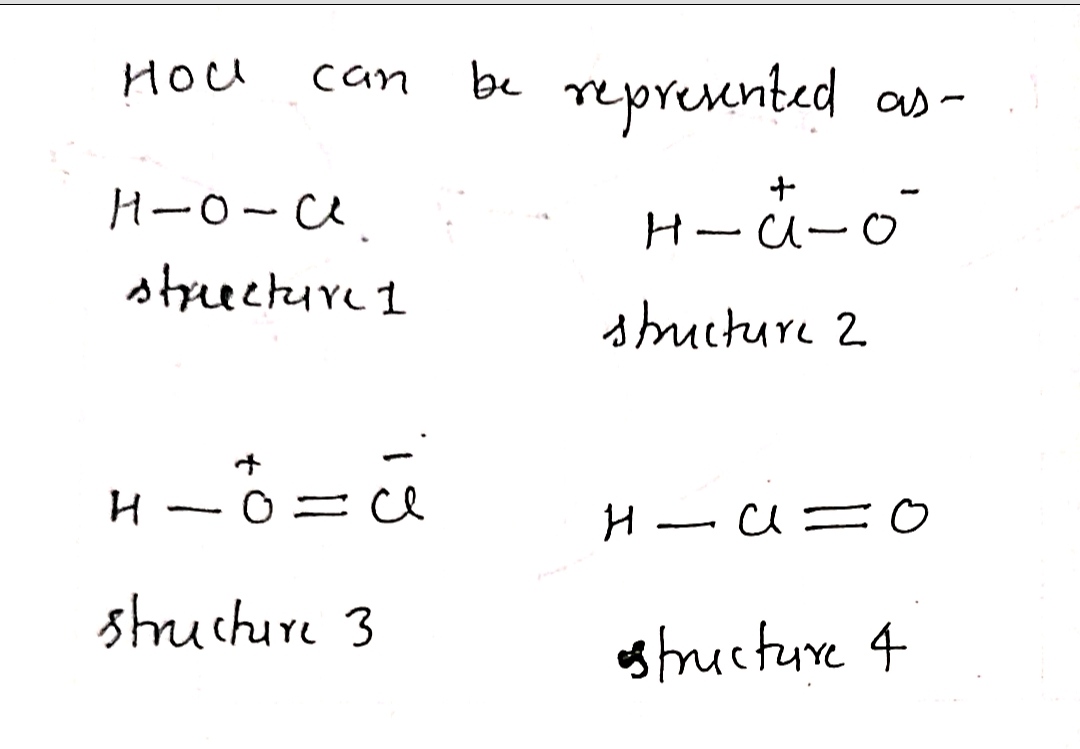 HOCl can be represented as-
H-O-Cl.
structure 1
H-Cl⁺-O⁻
structure 2
H-O⁺=Cl⁻
structure 3
H-Cl=O
structure 4